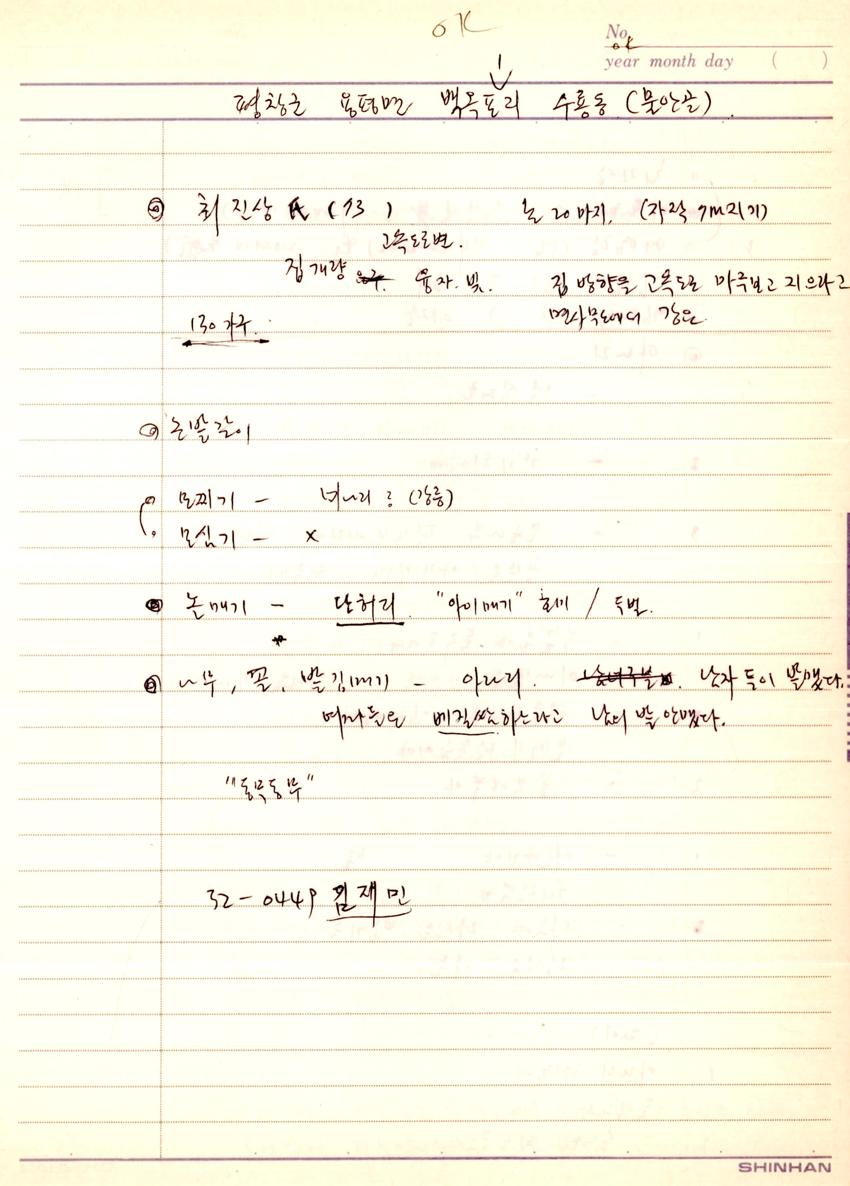 OK
No.
OK
year month day ( )
평창군 용평면 백옥포리 수룡동 (문안골)
◎ 최진상 氏 (73) 논 20마지, (자작 7마지기)
고속도로변.
집개량 융자. 빚. 집 방향을 고속도로 마주보고 지으라고
130가구. 면사무소에서 강요.
◎ 논밭갈이
모찌기 - 너나리 : (강릉)
모심기 - X
◎ 논매기 - 단허리. "아이매기" 호미 / 두벌.
◎ 나무, 꼴, 밭김매기 - 아라리. 남자들이 밭맸다.
여자들은 베길쌈하느라고 남의 밭 안맸다.
"동무동무"
32-0449 김재민
SHINHAN